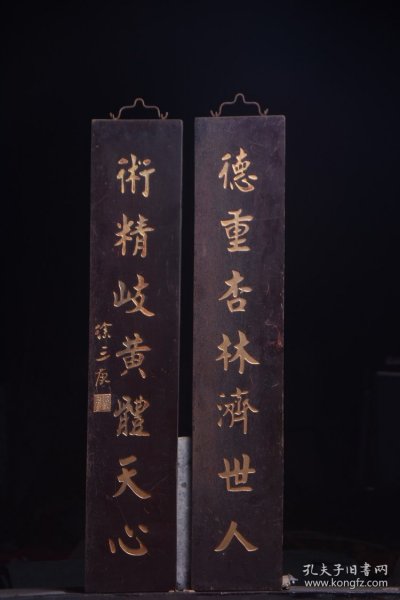 德重杏林濟世人
術精岐黃體天心
徐三庚
孔夫子旧书网
www.kongfz.com